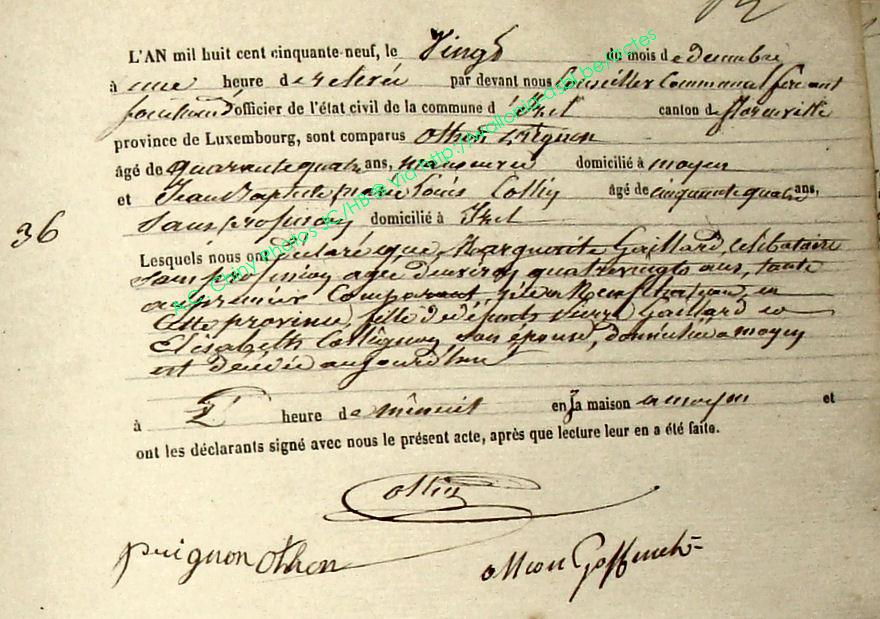 L'AN mil huit cent cinquante-neuf, le Vingt du mois de Decembre
à une heure de relevée par devant nous Conseiller Communal faisant
fonction d'officier de l'état civil de la commune d'Izel canton de florenville
province de Luxembourg, sont comparus Othon Puignon
âgé de quarante quatre ans, manoeuvre domicilié à moyen
et Jean Baptiste marie Louis Collin âgé de cinquante quatre ans,
36
sans profession domicilié à Izel
Lesquels nous ont déclaré que Marguerite Gaillard, celibataire
sans profession agée d'environ quatrevingts ans, tante
au premier Comparant née a en
cette province, fille de défunts Gaillard et
Elisabeth son épouse, domiciliée a moyen
est décédée aujourd'hui
à heure de minuit en sa maison a moyen et
ont les déclarants signé avec nous le présent acte, après que lecture leur en a été faite.
Collin
puignon Othon
Goffinet
A.E. Cainy Photos SC/HB © Via http://wallonia.sbi.be/actes